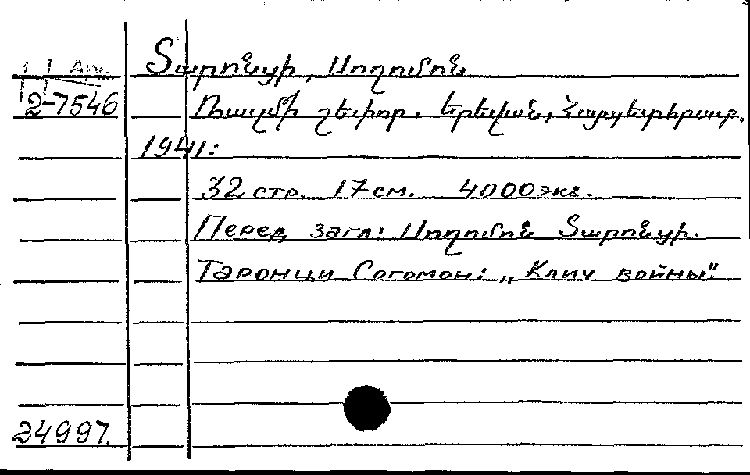 Арм.
Տարոնցի, Սողոմոն
2-7546 Ռազմի շեփոր. Երեվան, Հայպետհրատ.
1941:
32 стр. 17 см. 4000 экз.
Перед загл: Սողոմոն Տարոնցի.
Таронци Согомон: „Клич войны".
24997.